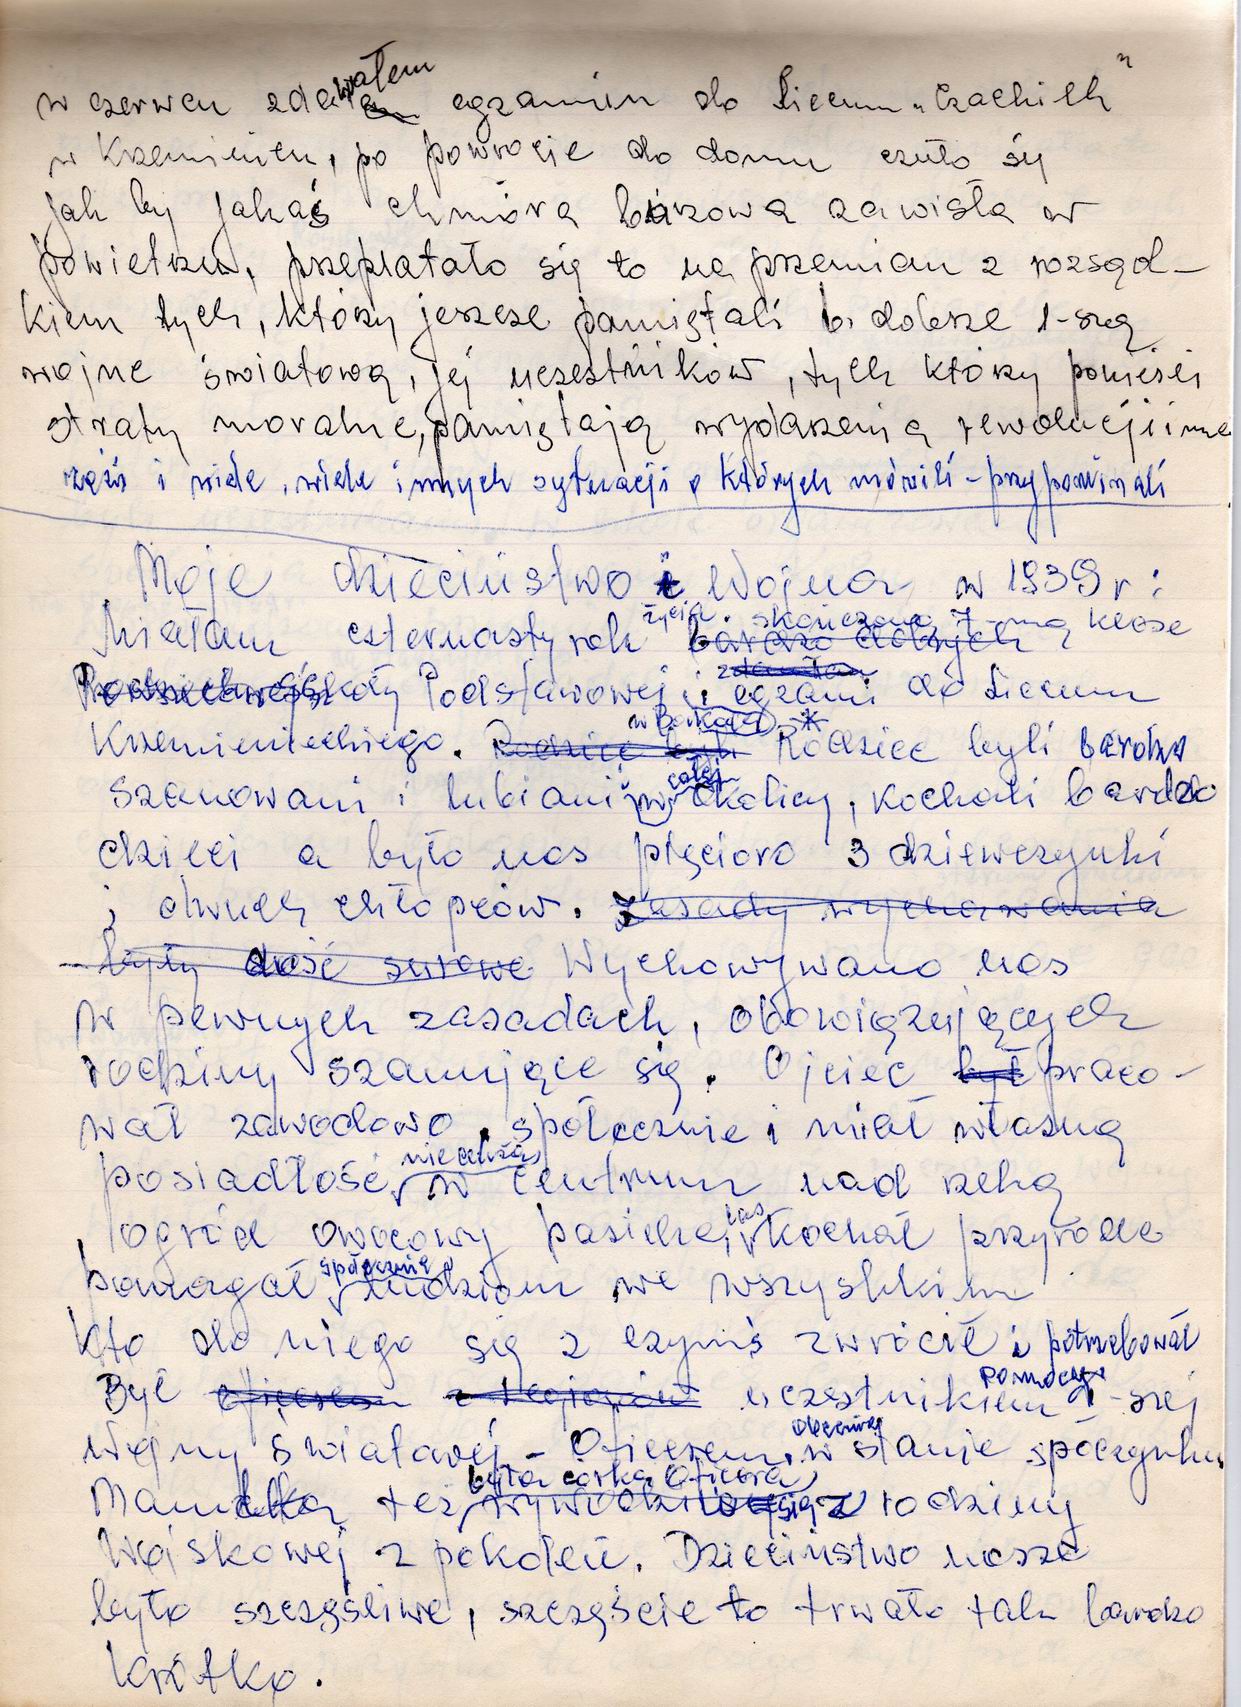 w czerwcu zdawałem egzamin do Liceum „Czackich"
w Krzemieńcu, po powrocie do domu czuło się
jak by jakaś chmóra burzowa zawisła w
powietrzu, przeplatało się to na przemian z rozsąd-
kiem tych, którzy jeszcze pamiętali b. dobrze 1-szą
wojne światową, jej uczestników, tych którzy ponieśli
straty moralne, pamiętają wydarzenia rewolucji i inne
i wiele, wiele innych sytuacji o których mówili - przypominali
Moje dzieciństwo i Wojna w 1939 r:
życia. skończoną 7-mą klase
Miałam czternasty rok bardzo dobrych
zdałam
szkoły Podstawowej i egzami do Liceum
w
Krzemienieckiego. Rodzice byli Rodzice byli bardzo
całej
szanowani i lubiani w okolicy, kochali bardzo
dzieci a było nas pięcioro 3 dziewczynki
i dwuch chłopców. Zasady wychowania
były dość surowe Wychowywano nas
w pewnych zasadach, obowiązujących
rodziny szanujące się. Ojciec był praco-
wał zawodowo, społecznie i miał własną
posiadłość, w centrum nad rzeką
las
ogród owocowy pasieka, kochał przyrode
społecznie
pomagał ludziom we wszystkim
kto do niego się z czymś zwrócił i potrzebował
pomocy
Był oficerem z legionów uczestnikiem 1-szej
obecnie
Wojny Światowej - Oficerem, w stanie spoczynku
była córką Oficera
Mama też wywodziła się z rodziny
Wojskowej z pokoleń. Dzieciństwo nasze
było szczęśliwe, szczęście to trwało tak bardzo
krótko.